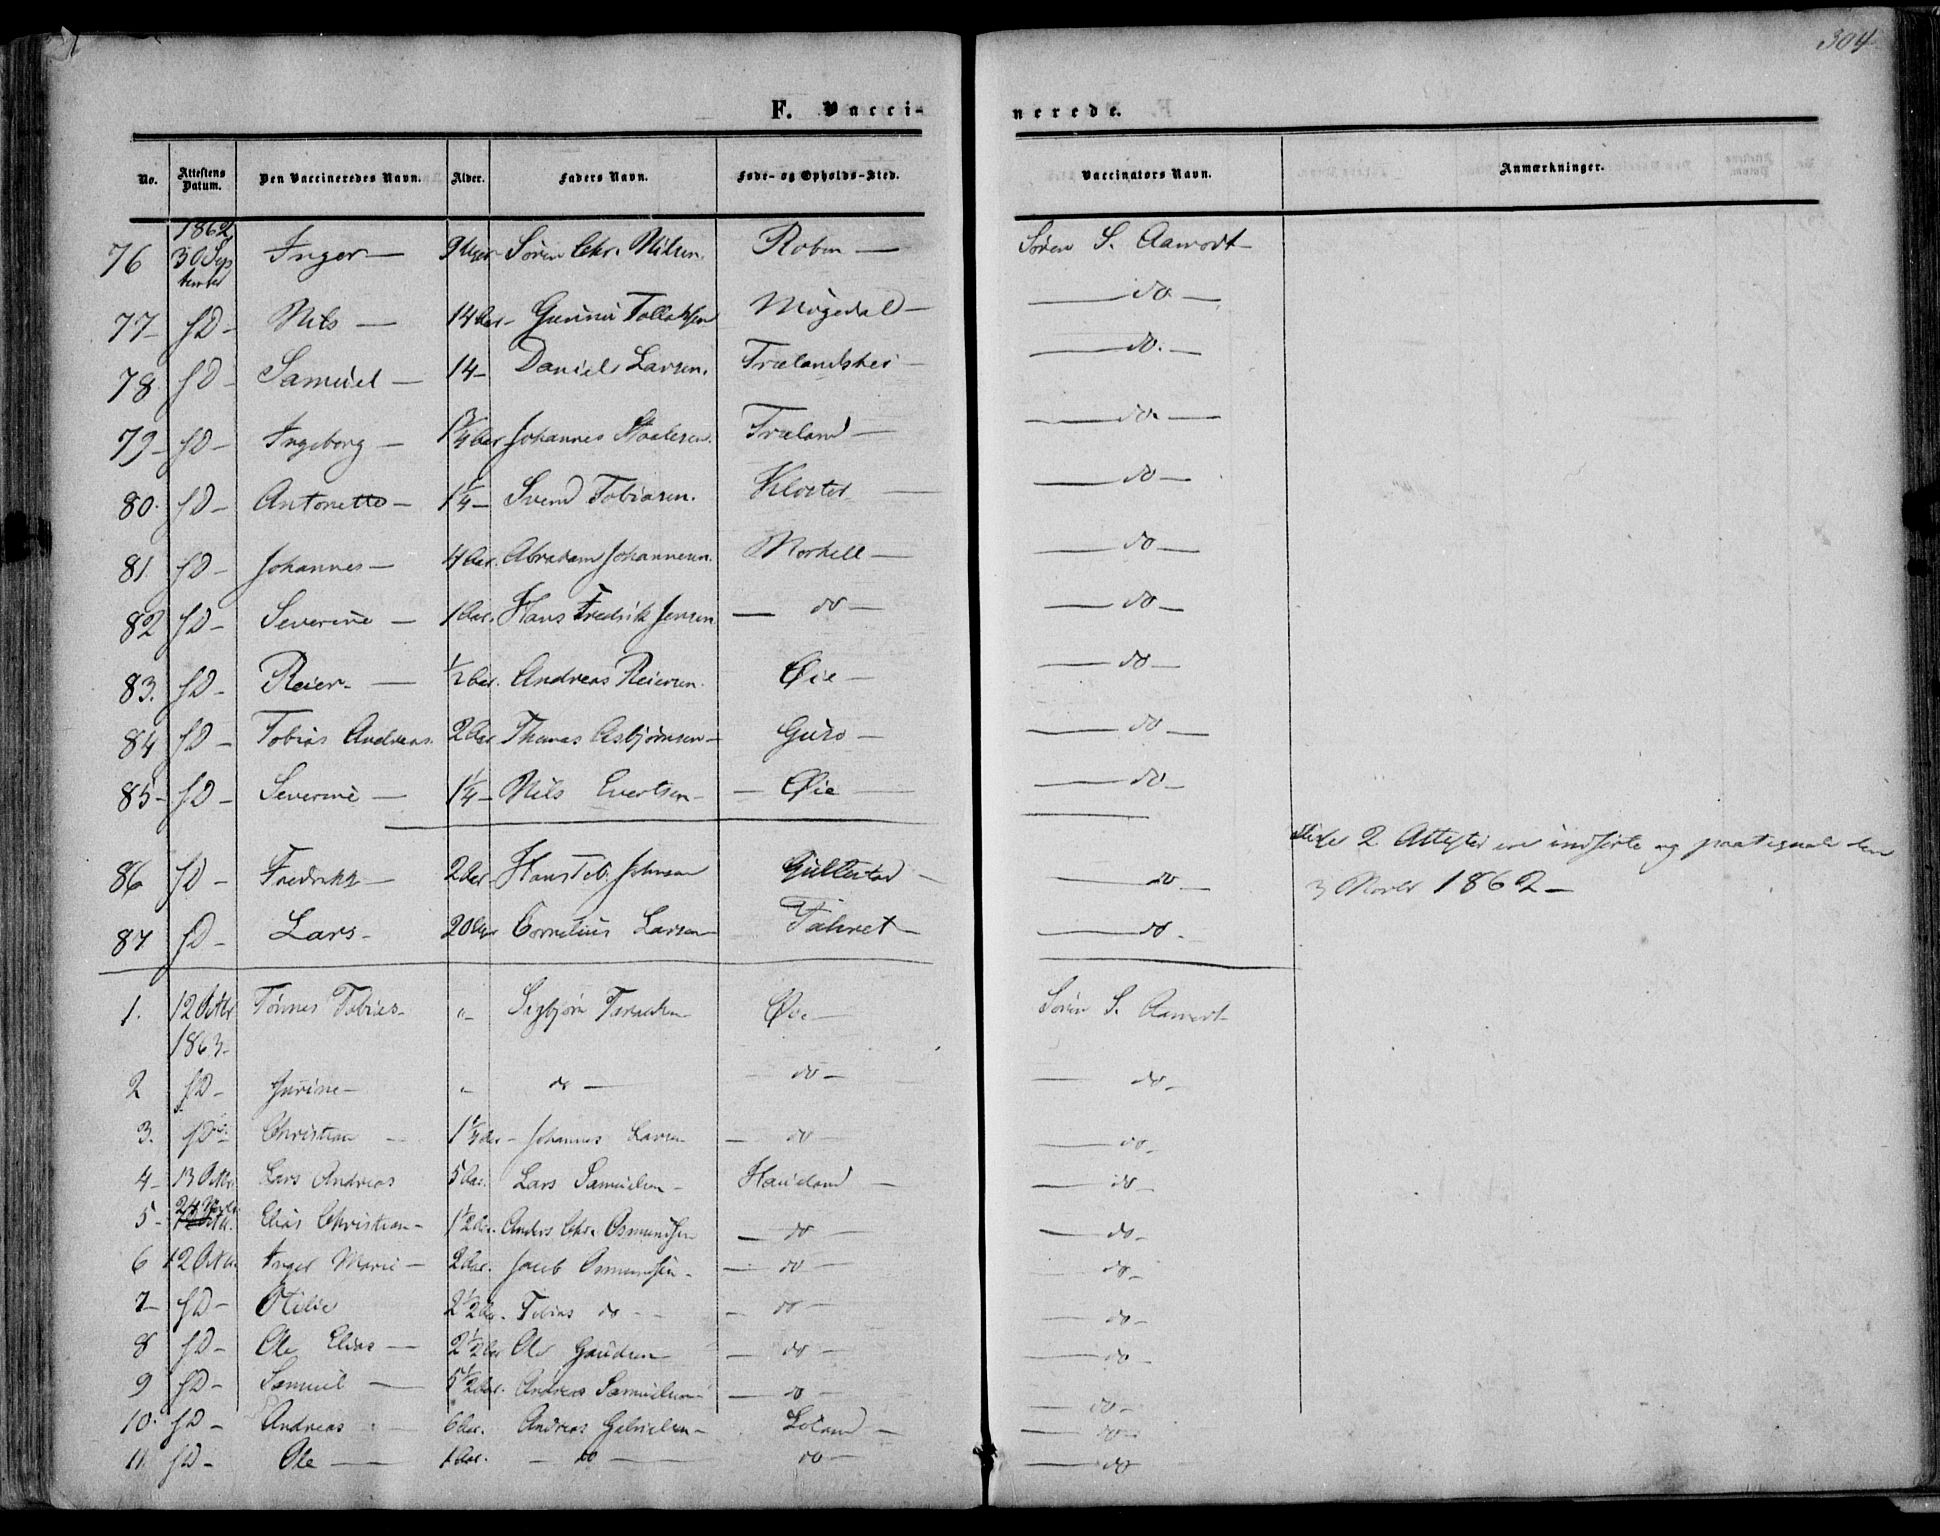 304
F. Vaccinerede.
No. Attestens Datum. Den Vaccineredes Navn. Alder. Faders Navn. Føde- og Opholds-Sted. Vaccinators Navn. Anmærkninger.
1862
76 30 September Inger — Søren Chr. Nilsen. Robn — Søren S. Aamodt —
77 — fD — Nils — 14 Aar — Gunner Tollaksen Mogedal — — do —
78. fD — Samuel — 14 — Daniel Larsen. Trælandshei — — do. —
79 — fD — Ingeborg — Johannes Staalesen. Træland — — do. —
80. fD — Antonette — 1 1/4 — Svend Tobiasen. Kloster — — do —
81. fD — Johannes — 4 Aar. Abraham Johannesen. Morkell — — do —
82 fD — Severine — 1 Aar. Hans Fredrik Jensen — do — — do —
83. fD — Reier. — 1/2 Aar. Andreas Reiersen. Øie — — do —
84 fD — Tobias Andreas. 2 Aar Thomas Asbjørnsen — Guro — — do —
85 — fD — Severine — 1 1/4 — Nils Evertsen — — Øie — — do —
86 fD — Fredrikk — 2 Aar — Hans Johnsen Gullestad — — do — 2 Attester ere indførte og paategnede den
3 Novbr 1862 —
87 fD — Lars — Cornelius Larsen — — do.
1. 12 Octbr 1863 — Tønnes Tobias — " — Sigbjørn Øie — Søren S. Aamodt —
2 fD — Jurine — " do — do — — do —
3. fD — Christian — 1 1/4 Aar — Johannes Larsen — do — — do —
4 — 13 Octbr. Lars Andreas 5 Aar. Lars Samuelsen — Haueland — — do —
5 — 24 Novbr Elias Christian — 1 1/2 Aar. Anders Chr. Osmundsen — do — — do —
6 12 Octbr. Inger Marie — 2 Aar. Jacob Osmundsen — — do — — do —
7 — fD — Otilie 2 1/2 Aar. Tobias do — — do — — do —
8 fD — Ole Elias — 2 1/2 Aar Ole Gaudsen — — do — — do —
9 fD — Samuel — 5 1/2 Aar. Andreas Samuelsen — do — — do —
10. fD — Andreas — 6 Aar. Andreas Gabrielsen — Loland — — do —
11. fD — Ole — 1 Aar. — do — do — — do